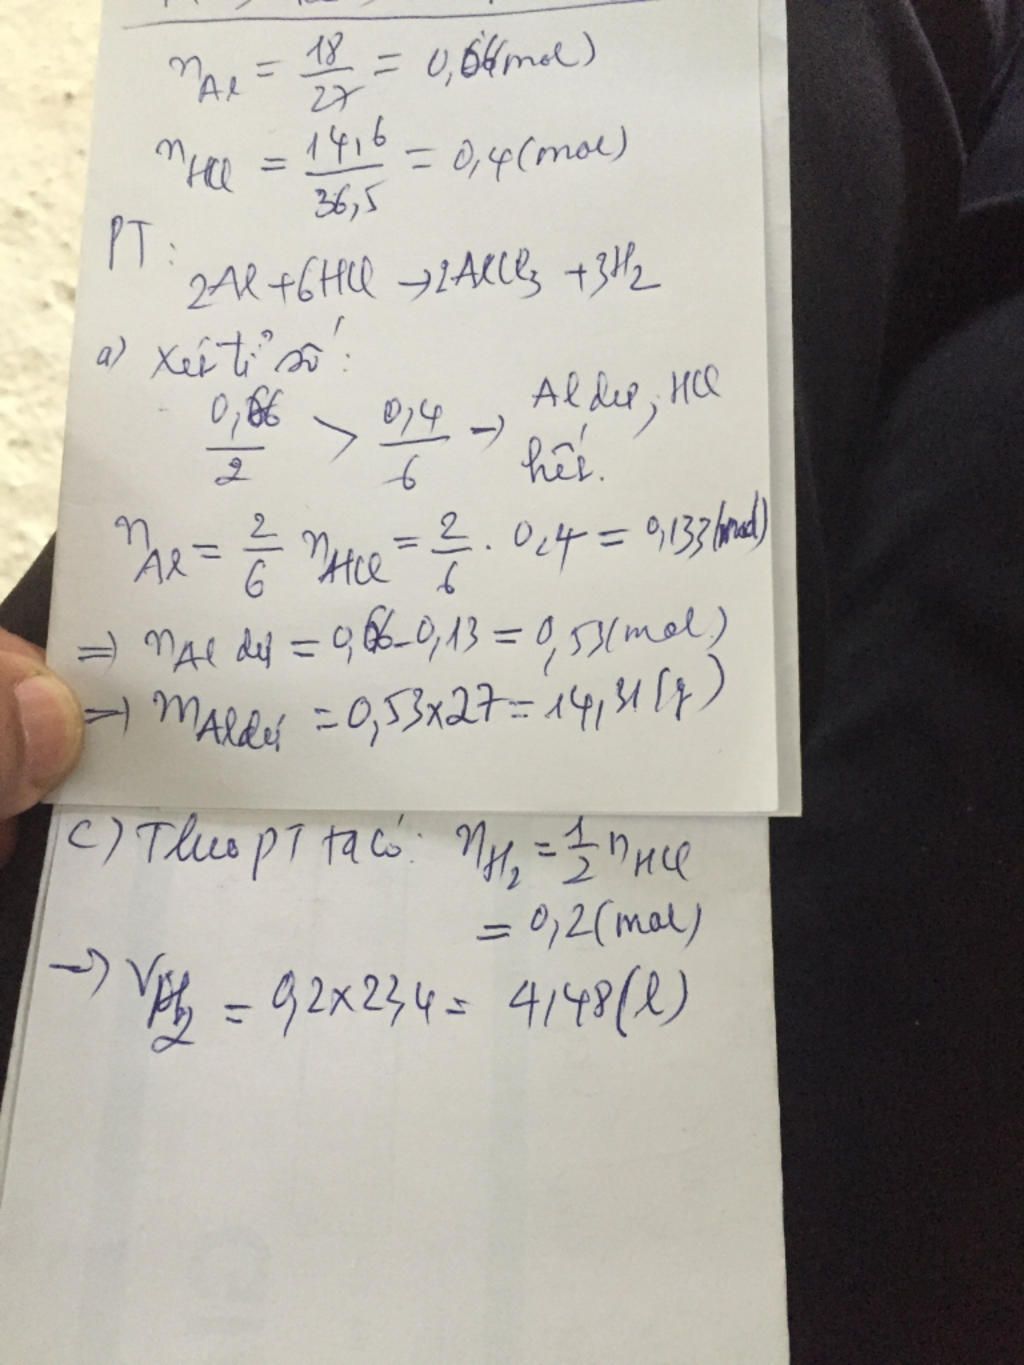 n Al = 18/27 = 0,66(mol)
n HCl = 14,6/36,5 = 0,4(mol)
PT:
2Al+6HCl → 2AlCl3 +3H2
a) Xét tỉ số:
0,66/2 > 0,4/6 → Al dư, HCl hết.
n Al = 2/6 n HCl = 2/6 . 0,4 = 0,133(mol)
⇒ n Al dư = 0,66-0,13 = 0,53(mol)
⇒ m Al dư = 0,53x27 = 14,31(g)
c) Theo PT ta có: n H2 = 1/2 n HCl
= 0,2(mol)
→ V H2 = 0,2x22,4 = 4,48(l)